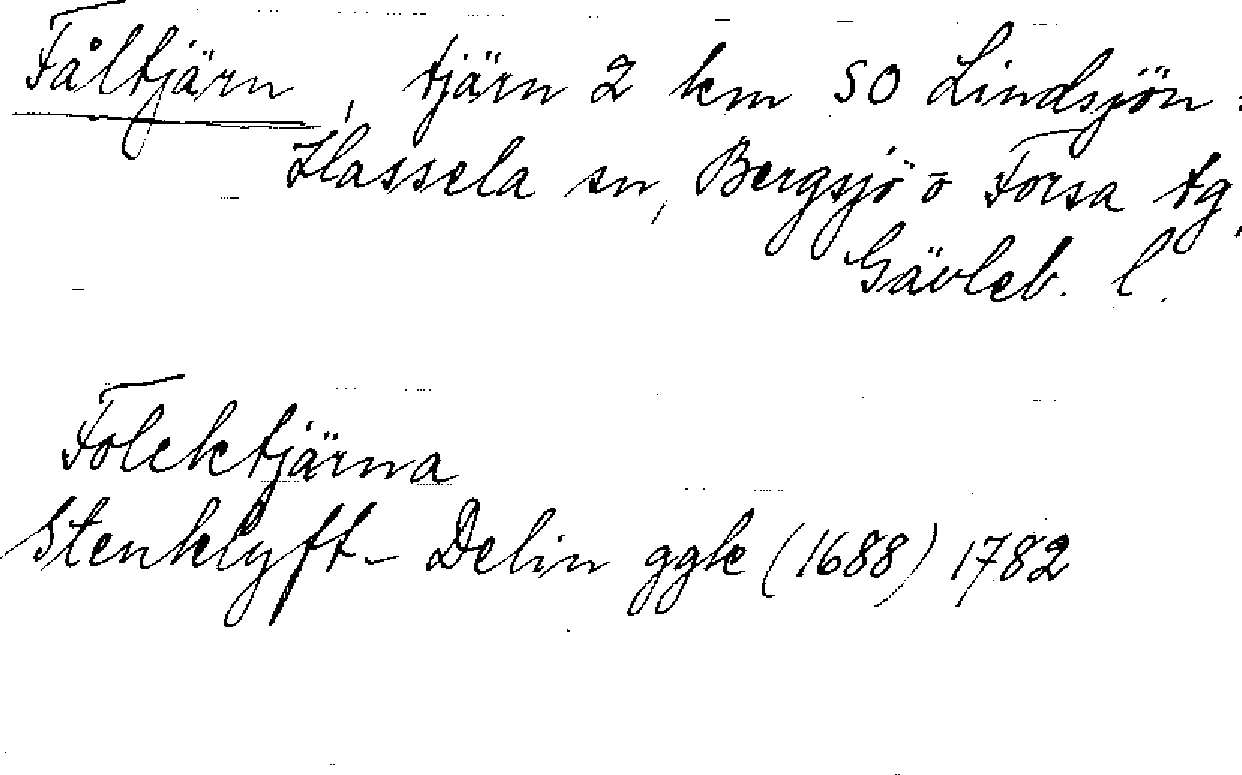 Fåltjärn, tjärn 2 km SO Lindsjön:
Hassela sn, Bergsjö o Forsa tg,
Gävleb. l.
Folcktjärna
Stenklyft- Delin ggk (1688) 1782